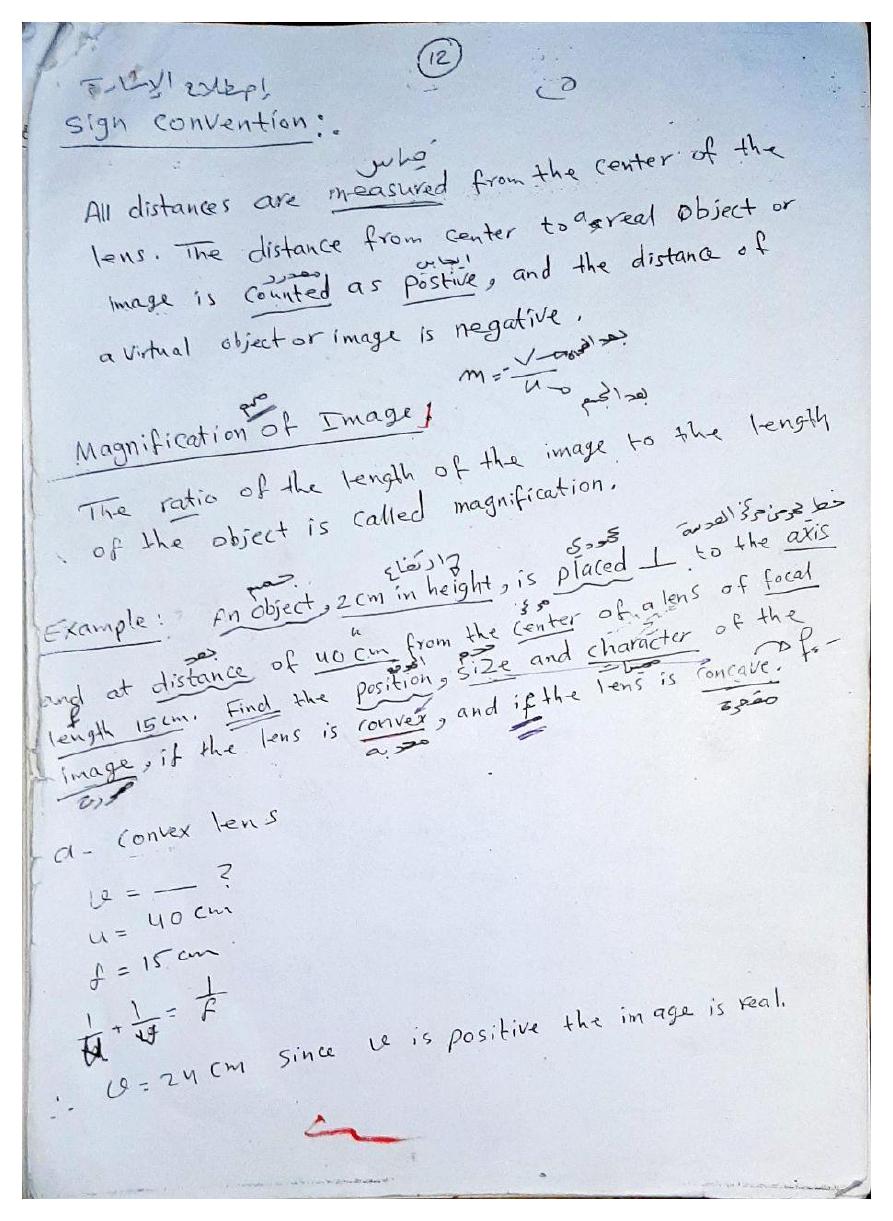 12
إصطلاح الإشارة
Sign convention:.
قياس
All distances are measured from the center of the
lens. The distance from center to a real object or
معدود
image is counted as postive, and the distance of
a virtual object or image is negative.
m = - v/u
بعد الجسم
Magnification of Image
The ratio of the length of the image to the length
of the object is called magnification.
جسم ارتفاع
Example: An object, 2 cm in height, is placed ⊥ to the axis
بعد
and at distance of 40 cm from the center of a lens of focal
length 15 cm. Find the position, size and character of the
image, if the lens is convex, and if the lens is concave. f -
محدبة مقعرة
صورة
a- convex lens
v = — ?
u = 40 cm
f = 15 cm
1/u + 1/v = 1/f
∴ v = 24 cm since v is positive the image is real.